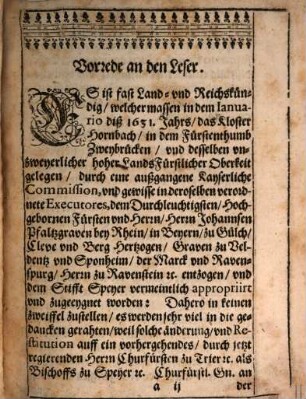 Vorrede an den Leser.
ES ist fast Land- vnd Reichskün-
dig / welcher massen in dem Ianua-
rio diß 1631. Jahrs / das Kloster
Hornbach / in dem Fürstenthumb
Zweybrücken / vnd desselben vn-
zweyerlicher hoher LandsFürstlicher Oberkeit
gelegen / durch eine außgangene Kayserliche
Commission, vnd gewisse in deroselben verord-
nete Executores, dem Durchleuchtigsten / Hoch-
gebornen Fürsten vnd Herrn / Herrn Johannsen
Pfaltzgraven bey Rhein / in Beyern / zu Gülch /
Cleve vnd Berg Hertzogen / Graven zu Vel-
dentz vnd Sponheim / der Marck vnd Raven-
spurg / Herrn zu Ravenstein ꝛc. entzogen / vnd
dem Stifft Speyer vermeinlich appropriirt
vnd zugeeygnet worden: Dahero in keinen
zweiffel zustellen / es werden jehr viel in die ge-
dancken gerahten / weil solche änderung / vnd Re-
stitution auff ein vorhergehendes / durch jetzt
regierenden Herrn Churfürsten zu Trier ꝛc. als
Bischoffs zu Speyer ꝛc. Churfürstl. Gn. an
a ij der